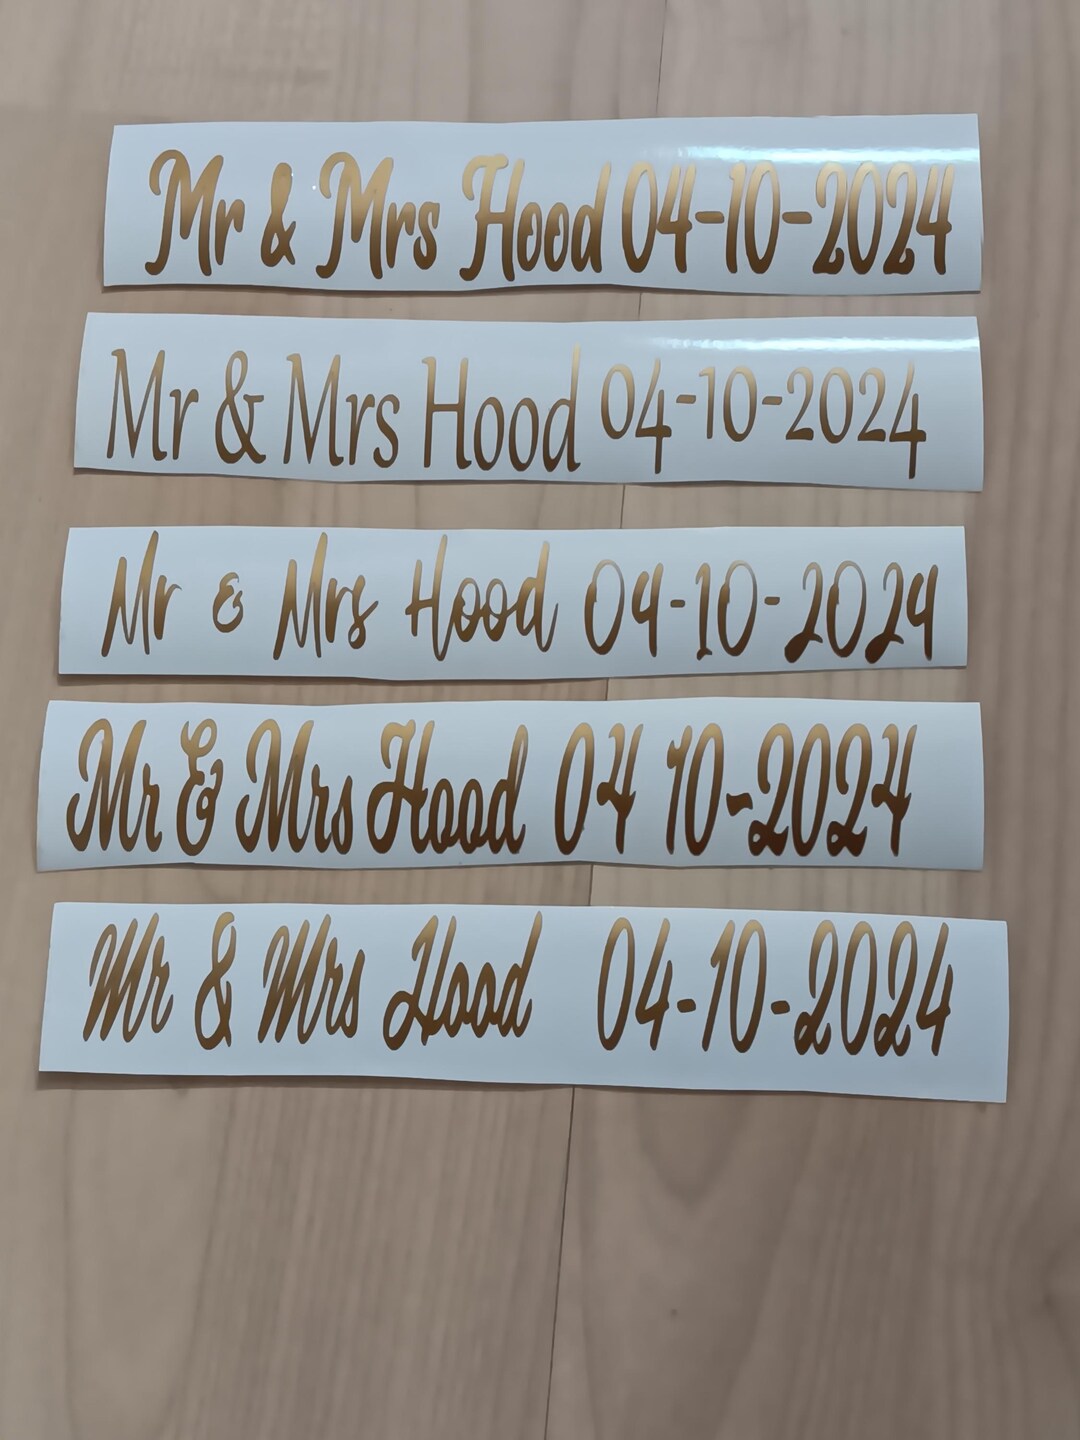 Mr & Mrs Hood 04-10-2024
Mr & Mrs Hood 04-10-2024
Mr & Mrs Hood 04-10-2024
Mr & Mrs Hood 04 10-2024
Mr & Mrs Hood 04-10-2024